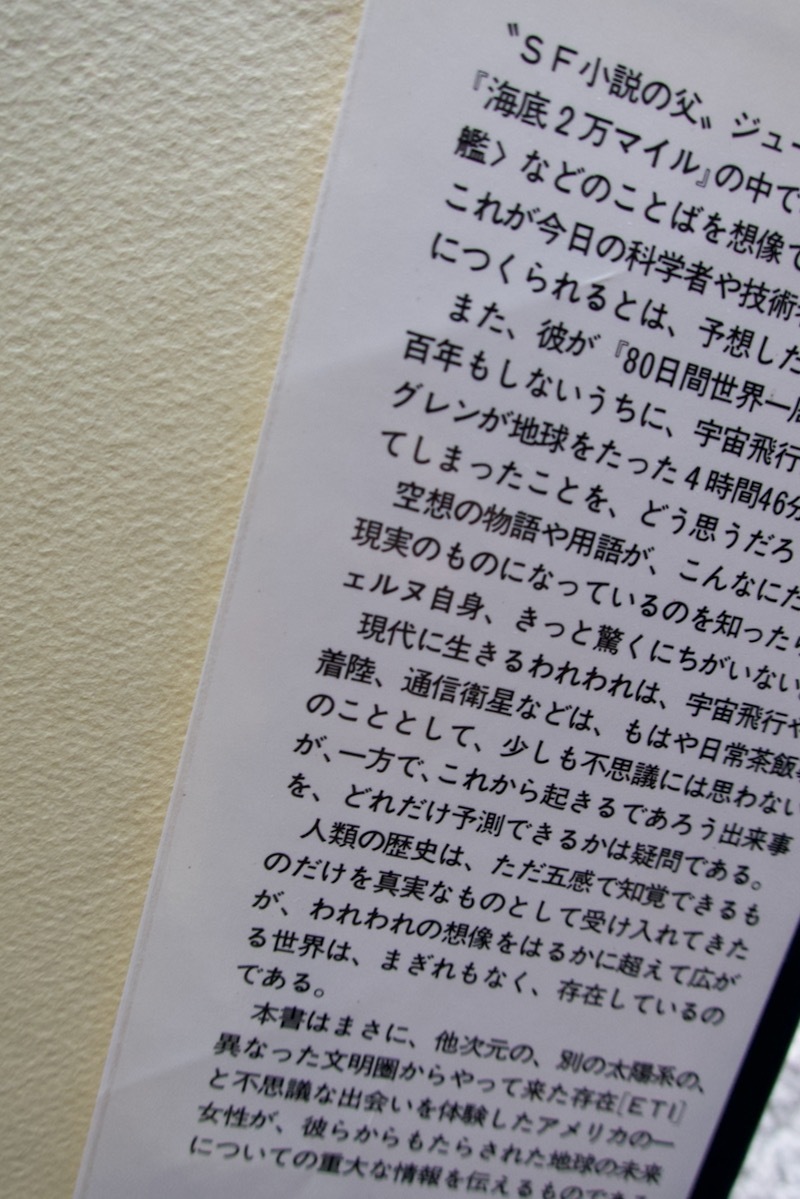 〝ＳＦ小説の父〟ジュー
『海底２万マイル』の中で
艦〉などのことばを想像で
これが今日の科学者や技術
につくられるとは、予想した
また、彼が『80日間世界一周
百年もしないうちに、宇宙飛行
グレンが地球をたった４時間46分
てしまったことを、どう思うだろ
空想の物語や用語が、こんなにた
現実のものになっているのを知ったら
ェルヌ自身、きっと驚くにちがいない。
現代に生きるわれわれは、宇宙飛行や
着陸、通信衛星などは、もはや日常茶飯事
のこととして、少しも不思議には思わない
が、一方で、これから起きるであろう出来事
を、どれだけ予測できるかは疑問である。
人類の歴史は、ただ五感で知覚できるも
のだけを真実なものとして受け入れてきた
が、われわれの想像をはるかに超えて広が
る世界は、まぎれもなく、存在しているの
である。
本書はまさに、他次元の、別の太陽系の、
異なった文明圏からやって来た存在［ＥＴＩ］
と不思議な出会いを体験したアメリカの一
女性が、彼らからもたらされた地球の未来
についての重大な情報を伝えるものである